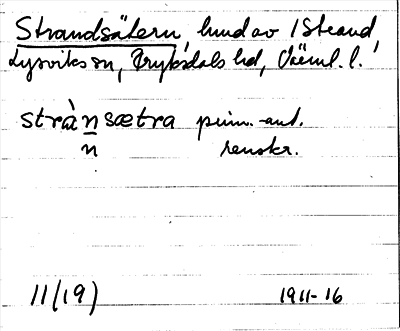 Strandsätern, hmd av 1 Strand,
Lysviks sn, Fryksdals hd, Värml. l.
stràn sætra prim.-ant.
n renskr.
11(19) 1911-16